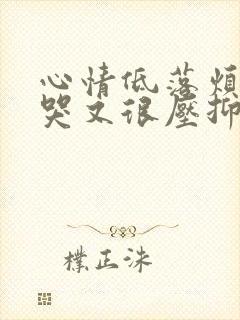 心情低落烦
哭又很压抑
樸正洙